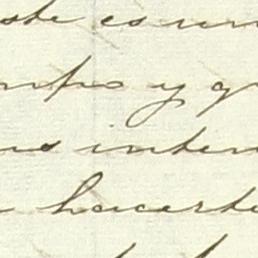 ste es un
mpo y q
us inten
hacerte